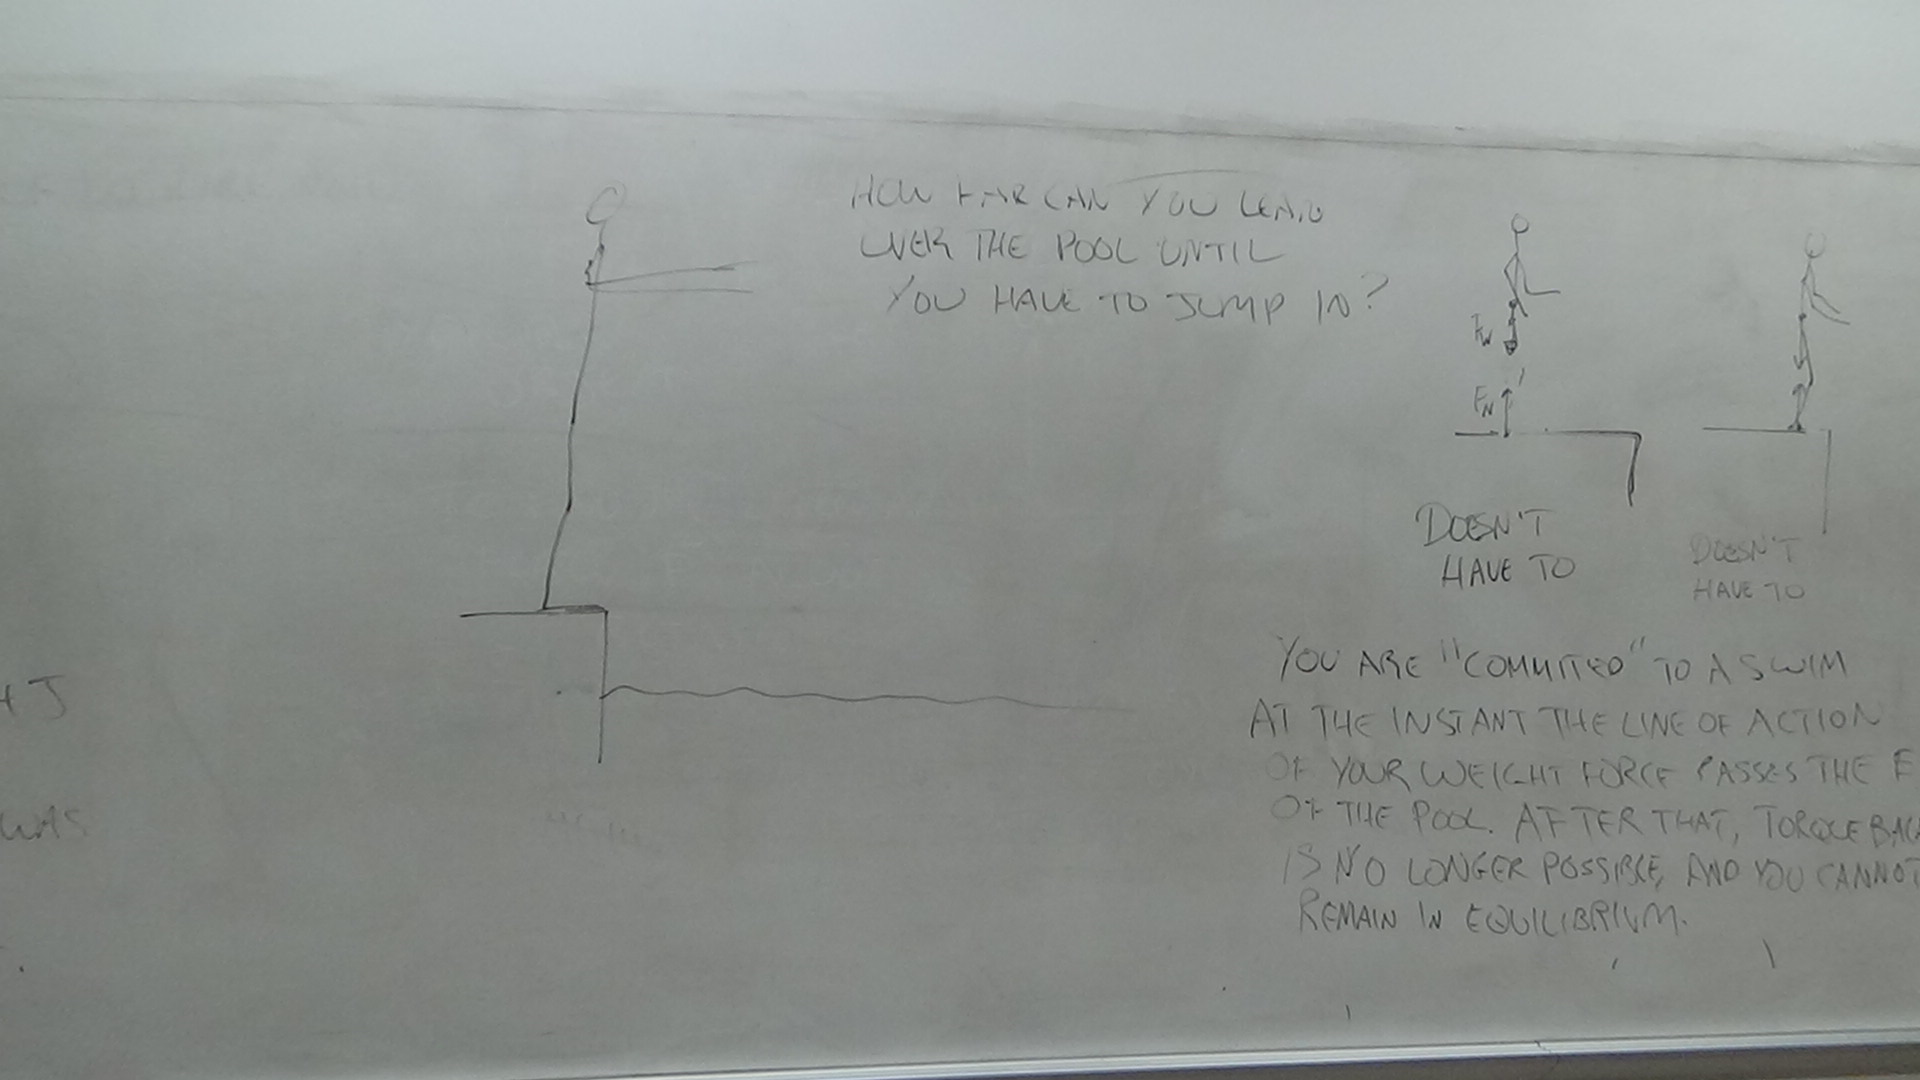 HOW FAR CAN YOU LEAN
OVER THE POOL UNTIL
YOU HAVE TO JUMP IN?
FW
FN
DOESN'T
HAVE TO
DOESN'T
HAVE TO
YOU ARE "COMMITED" TO A SWIM
AT THE INSTANT THE LINE OF ACTION
OF YOUR WEIGHT FORCE PASSES THE E
OF THE POOL. AFTER THAT, TORQUE BACK
IS NO LONGER POSSIBLE, AND YOU CANNOT
REMAIN IN EQUILIBRIUM.
J